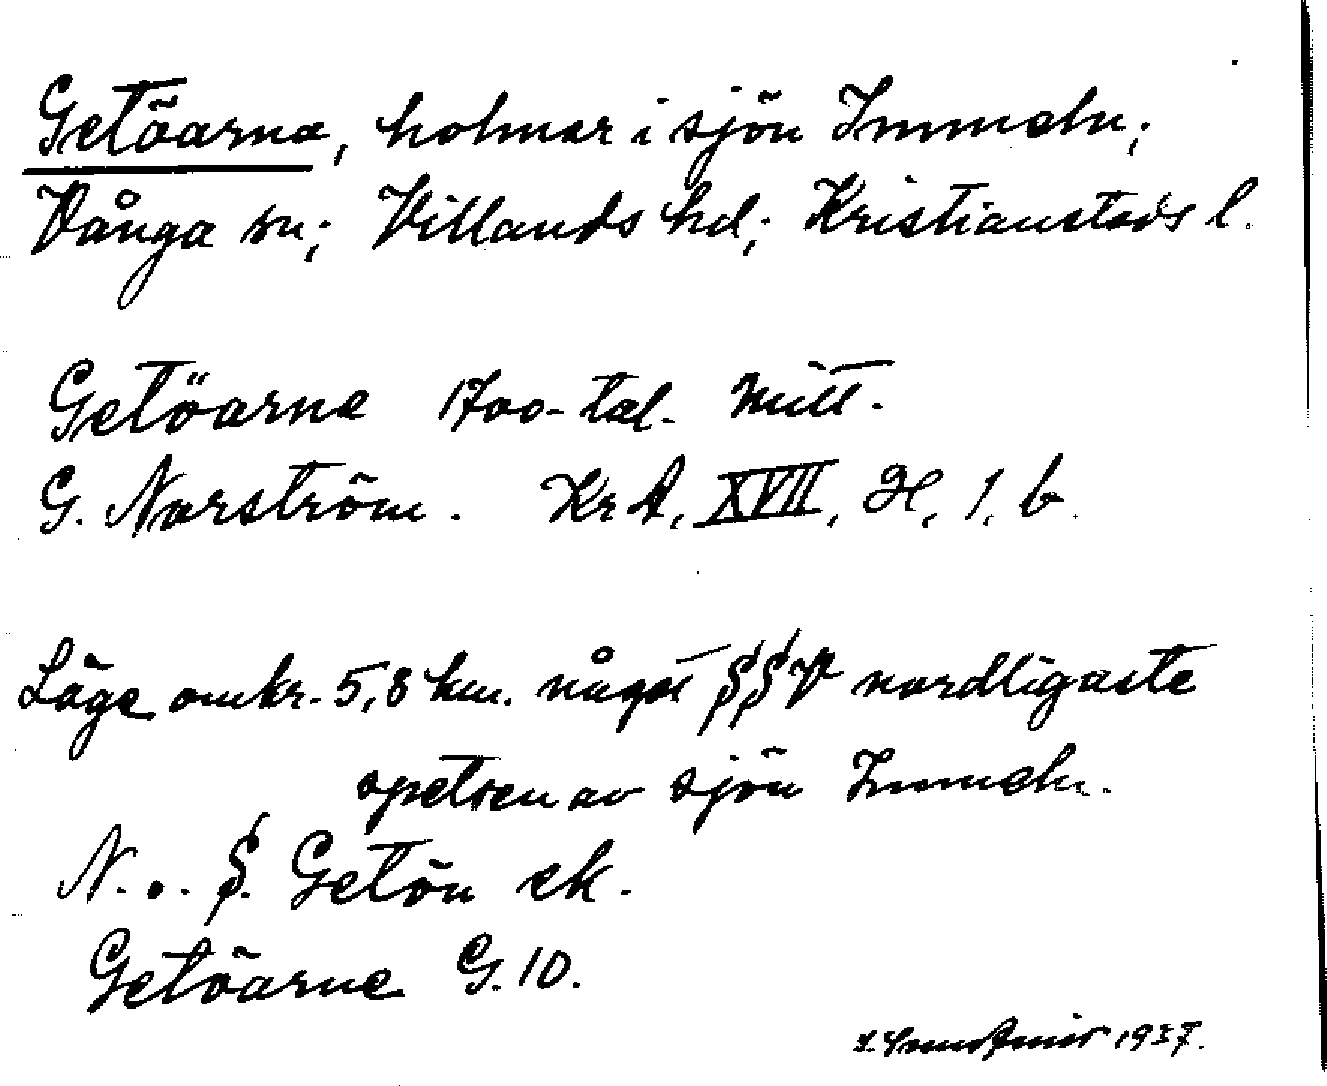 Getöarna, holmar i sjön Immeln;
Vånga sn; Villands hd; Kristianstads l.
Getöarne 1700-tal. Mitt.
G. Norström. KrA, XVII, H, 1, b
Läge omkr. 5,8 km. något SSV nordligaste
spetsen av sjön Immeln.
N. o. S. Getön ek.
Getöarne G. 10.
1937.